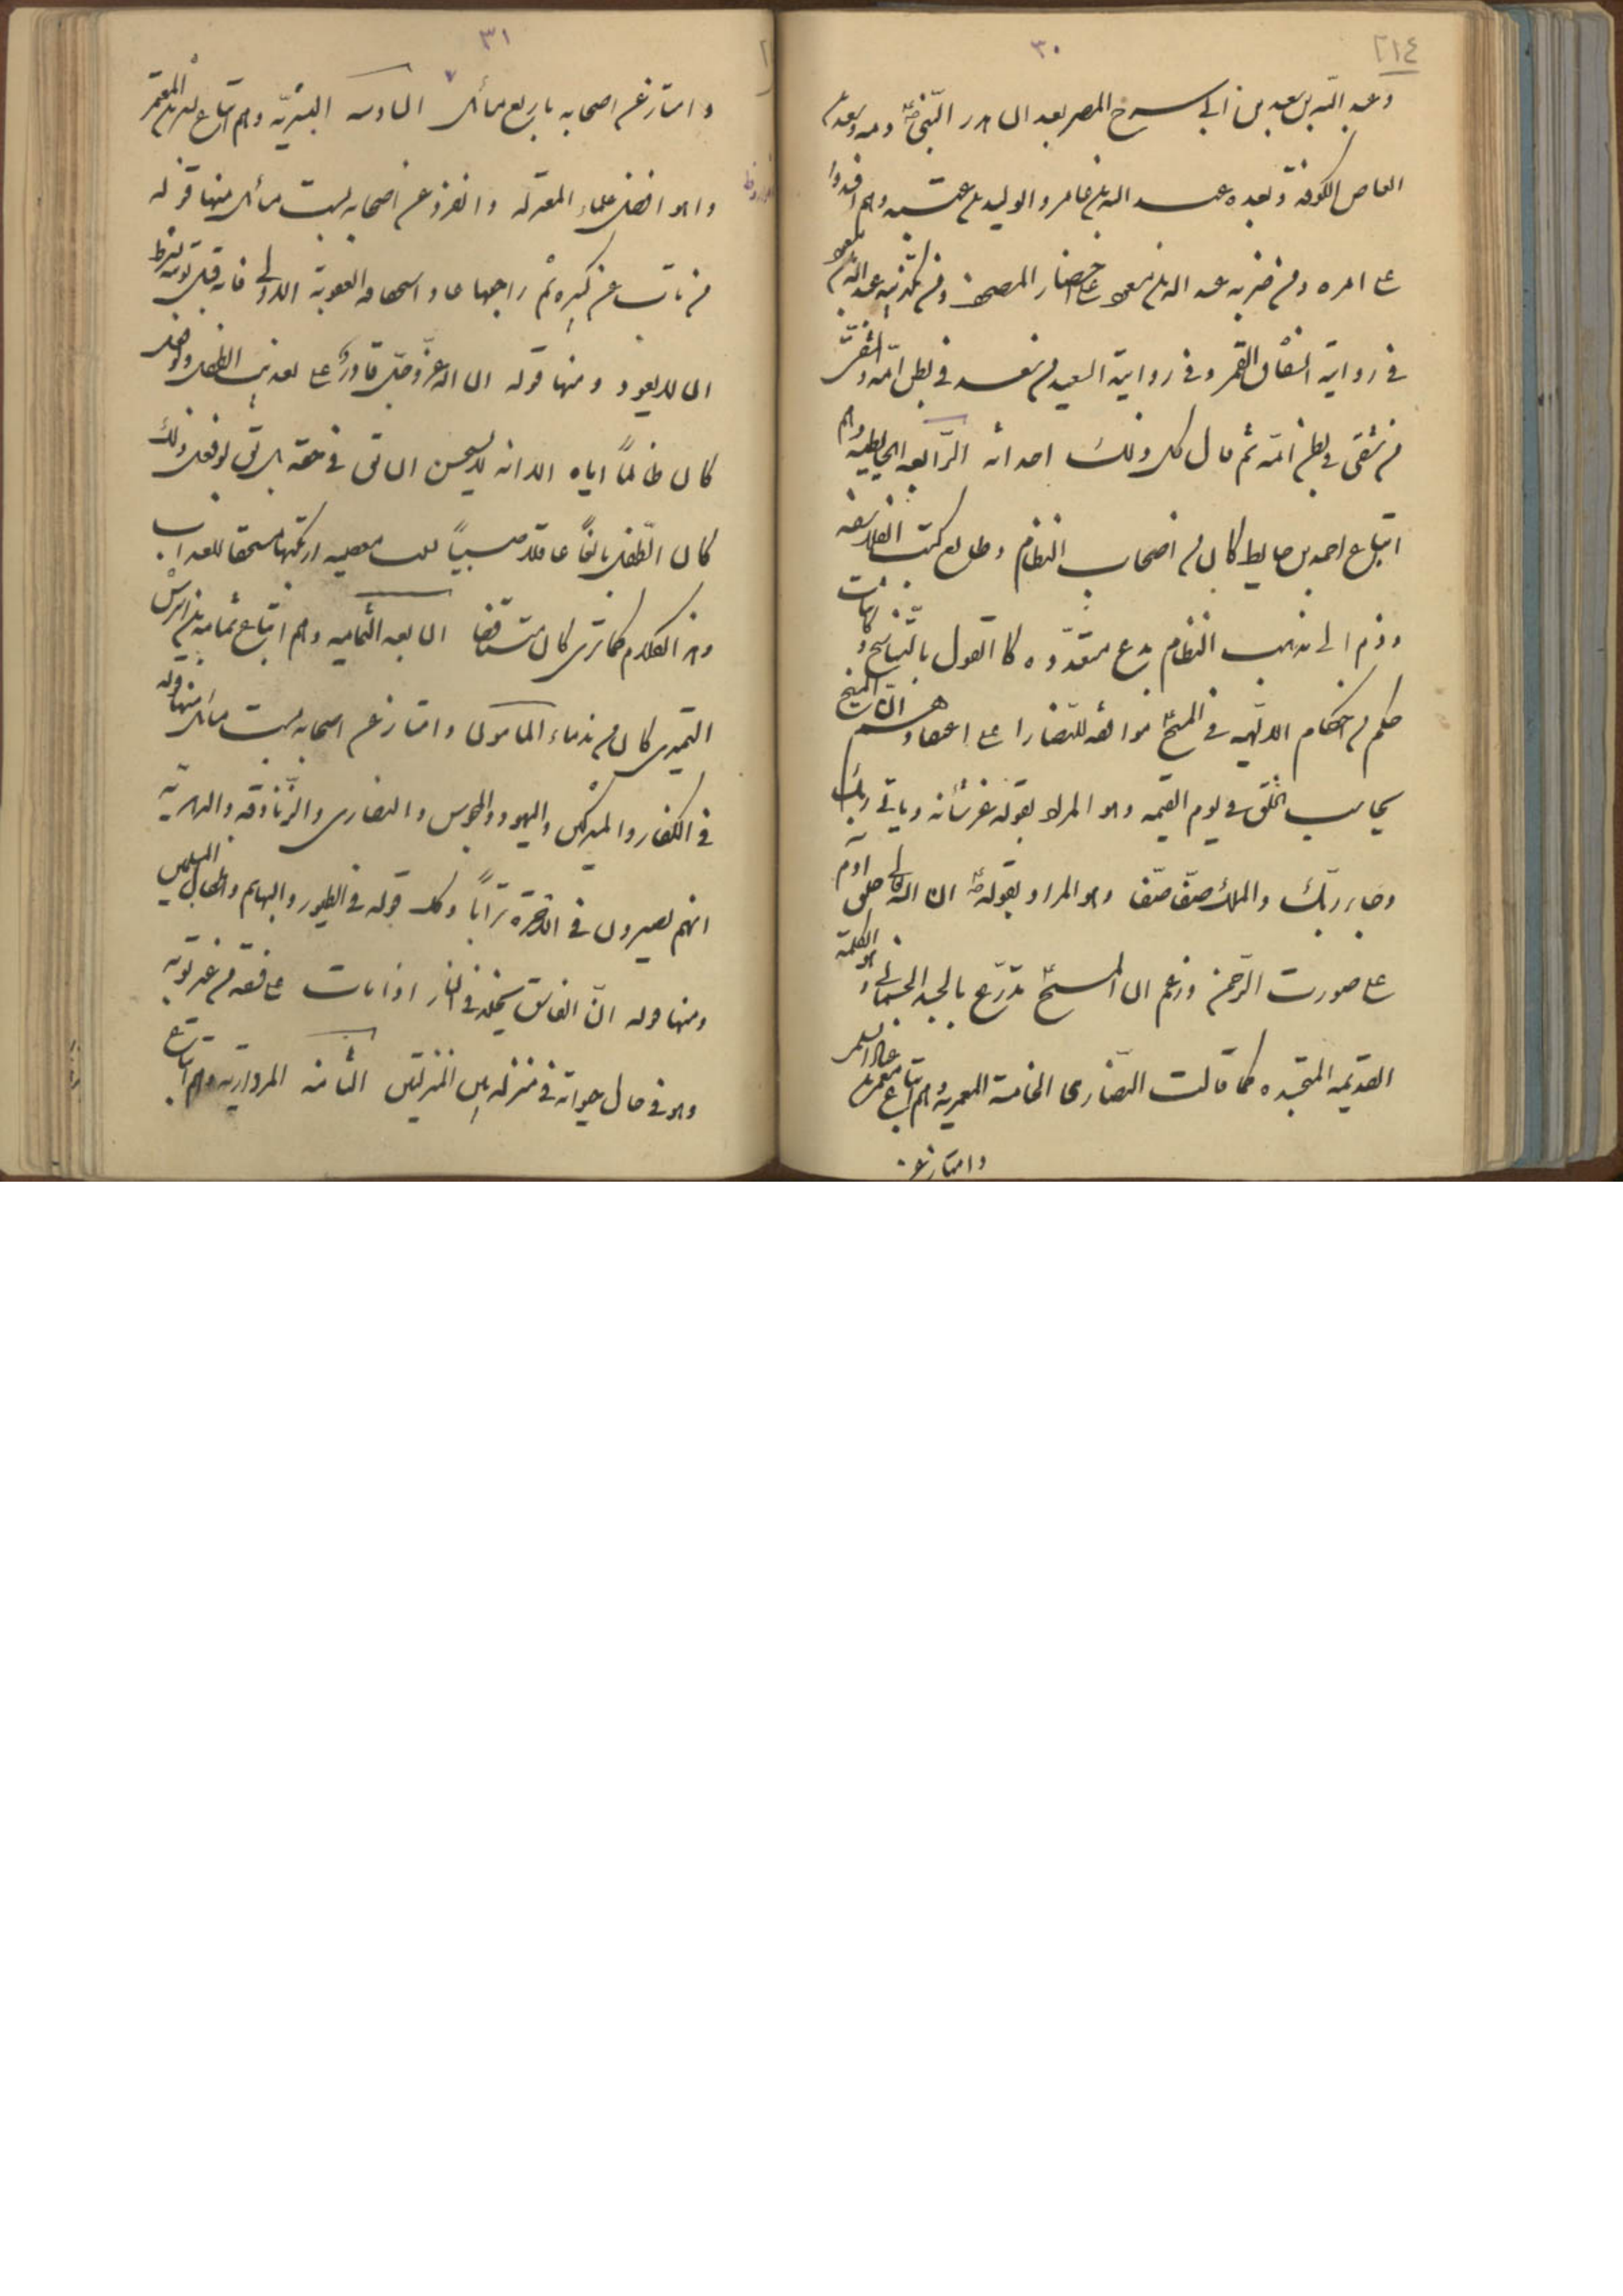 ٢١٤
٣٠
وعبد الله بن سعد بن ابي سرح المصر بعد ان اهدر النبي ص دمه وسعد بن
العاص الكوفة وبعده عبد الله بن عامر والوليد بن عتبه وهم افسدوا
على امره ومن ضربه عبد الله بن مسعود على احضار المصحف ومن تكذيبه عبد الله بن مسعود
في رواية انشقاق القمر وفي رواية السعيد من سعد في بطن امه والشقي
من شقى في بطن امه ثم قال كل ذلك احداثه الرابعه الحايطيه وهم
اتباع احمد بن حايط كان من اصحاب النظام وطالع كتب الفلاسفه
وضم الى مذهب النظام بدع متعدده كالقول بالتناسخ واثبات
حكم من احكام الالهيه في المسيح ع موافقه للنصارا على اعتقادهم ان المسيح
يحاسب الخلق في يوم القيمه وهو المراد بقوله عز شأنه وياتي ربك
وجاء ربك والملك صفا صفا وهو المراد بقوله ص ان الله تعالى خلق آدم
على صورت الرحمن وزعم ان المسيح ع تدرع بالجسد الجسماني وهو الكلمة
القديمه المتجسده كما قالت النصارى الخامسة المعمريه وهم اتباع معمر بن عباد السلمى
وامتاز عن
٣١
وامتاز عن اصحابه باربع مسائل السادسه البشريه وهم اتباع بشر بن المعتمر
وهو افضل علماء المعتزله وانفرد عن اصحابه بست مسائل منها قوله
من تاب عن كبيره ثم راجعها عاد استحقاقه العقوبة الاولى فانه قبل توبته بشرط
ان لا يعود ومنها قوله ان الله عز وجل قادر على تعذيب الطفل ولو فعل
كان ظالماً اياه الا انه لا يستحسن ان يقال في حقه بل يقال لو فعل ذلك
كان الطفل بالغاً عاقلا عاصياً بمعصيه ارتكبها مستحقا للعذاب
وهذا الكلام كما ترى كان متناقضا السابعه الثماميه وهم اتباع ثمامه بن اشرس
النميرى كان من ندماء المأمون وامتاز عن اصحابه بست مسائل منها قوله
في الكفار والمشركين واليهود والمجوس والنصارى والزنادقه والدهرية
انهم يصيرون في الاخرة تراباً وكذلك قوله في الطيور والبهايم واطفال المسلمين
ومنها قوله ان الفاسق يخلد في النار اذا مات على فسقه من غير توبه
وهو في حال حيوته في منزله بين المنزلتين الثامنه المرداريه وهم اتباع